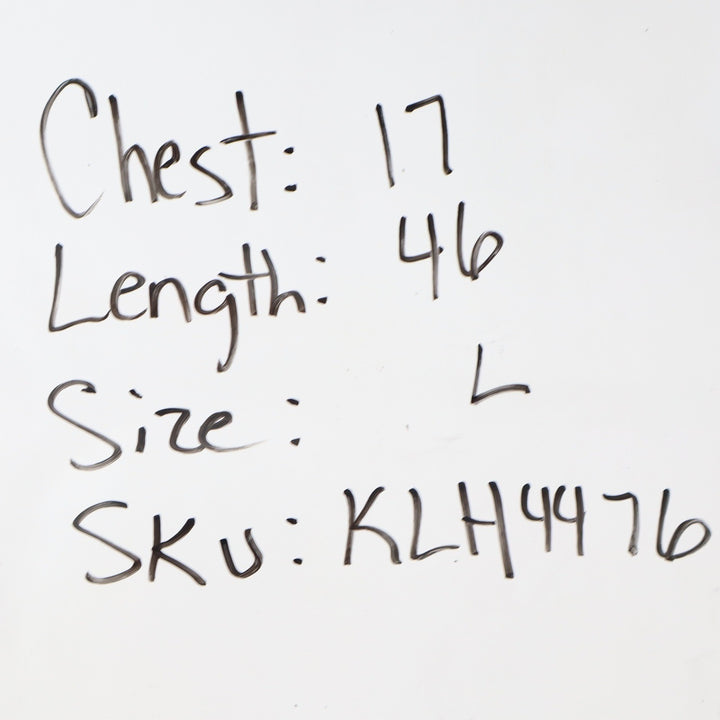 Chest: 17
Length: 46
Size: L
SKU: KLH4476